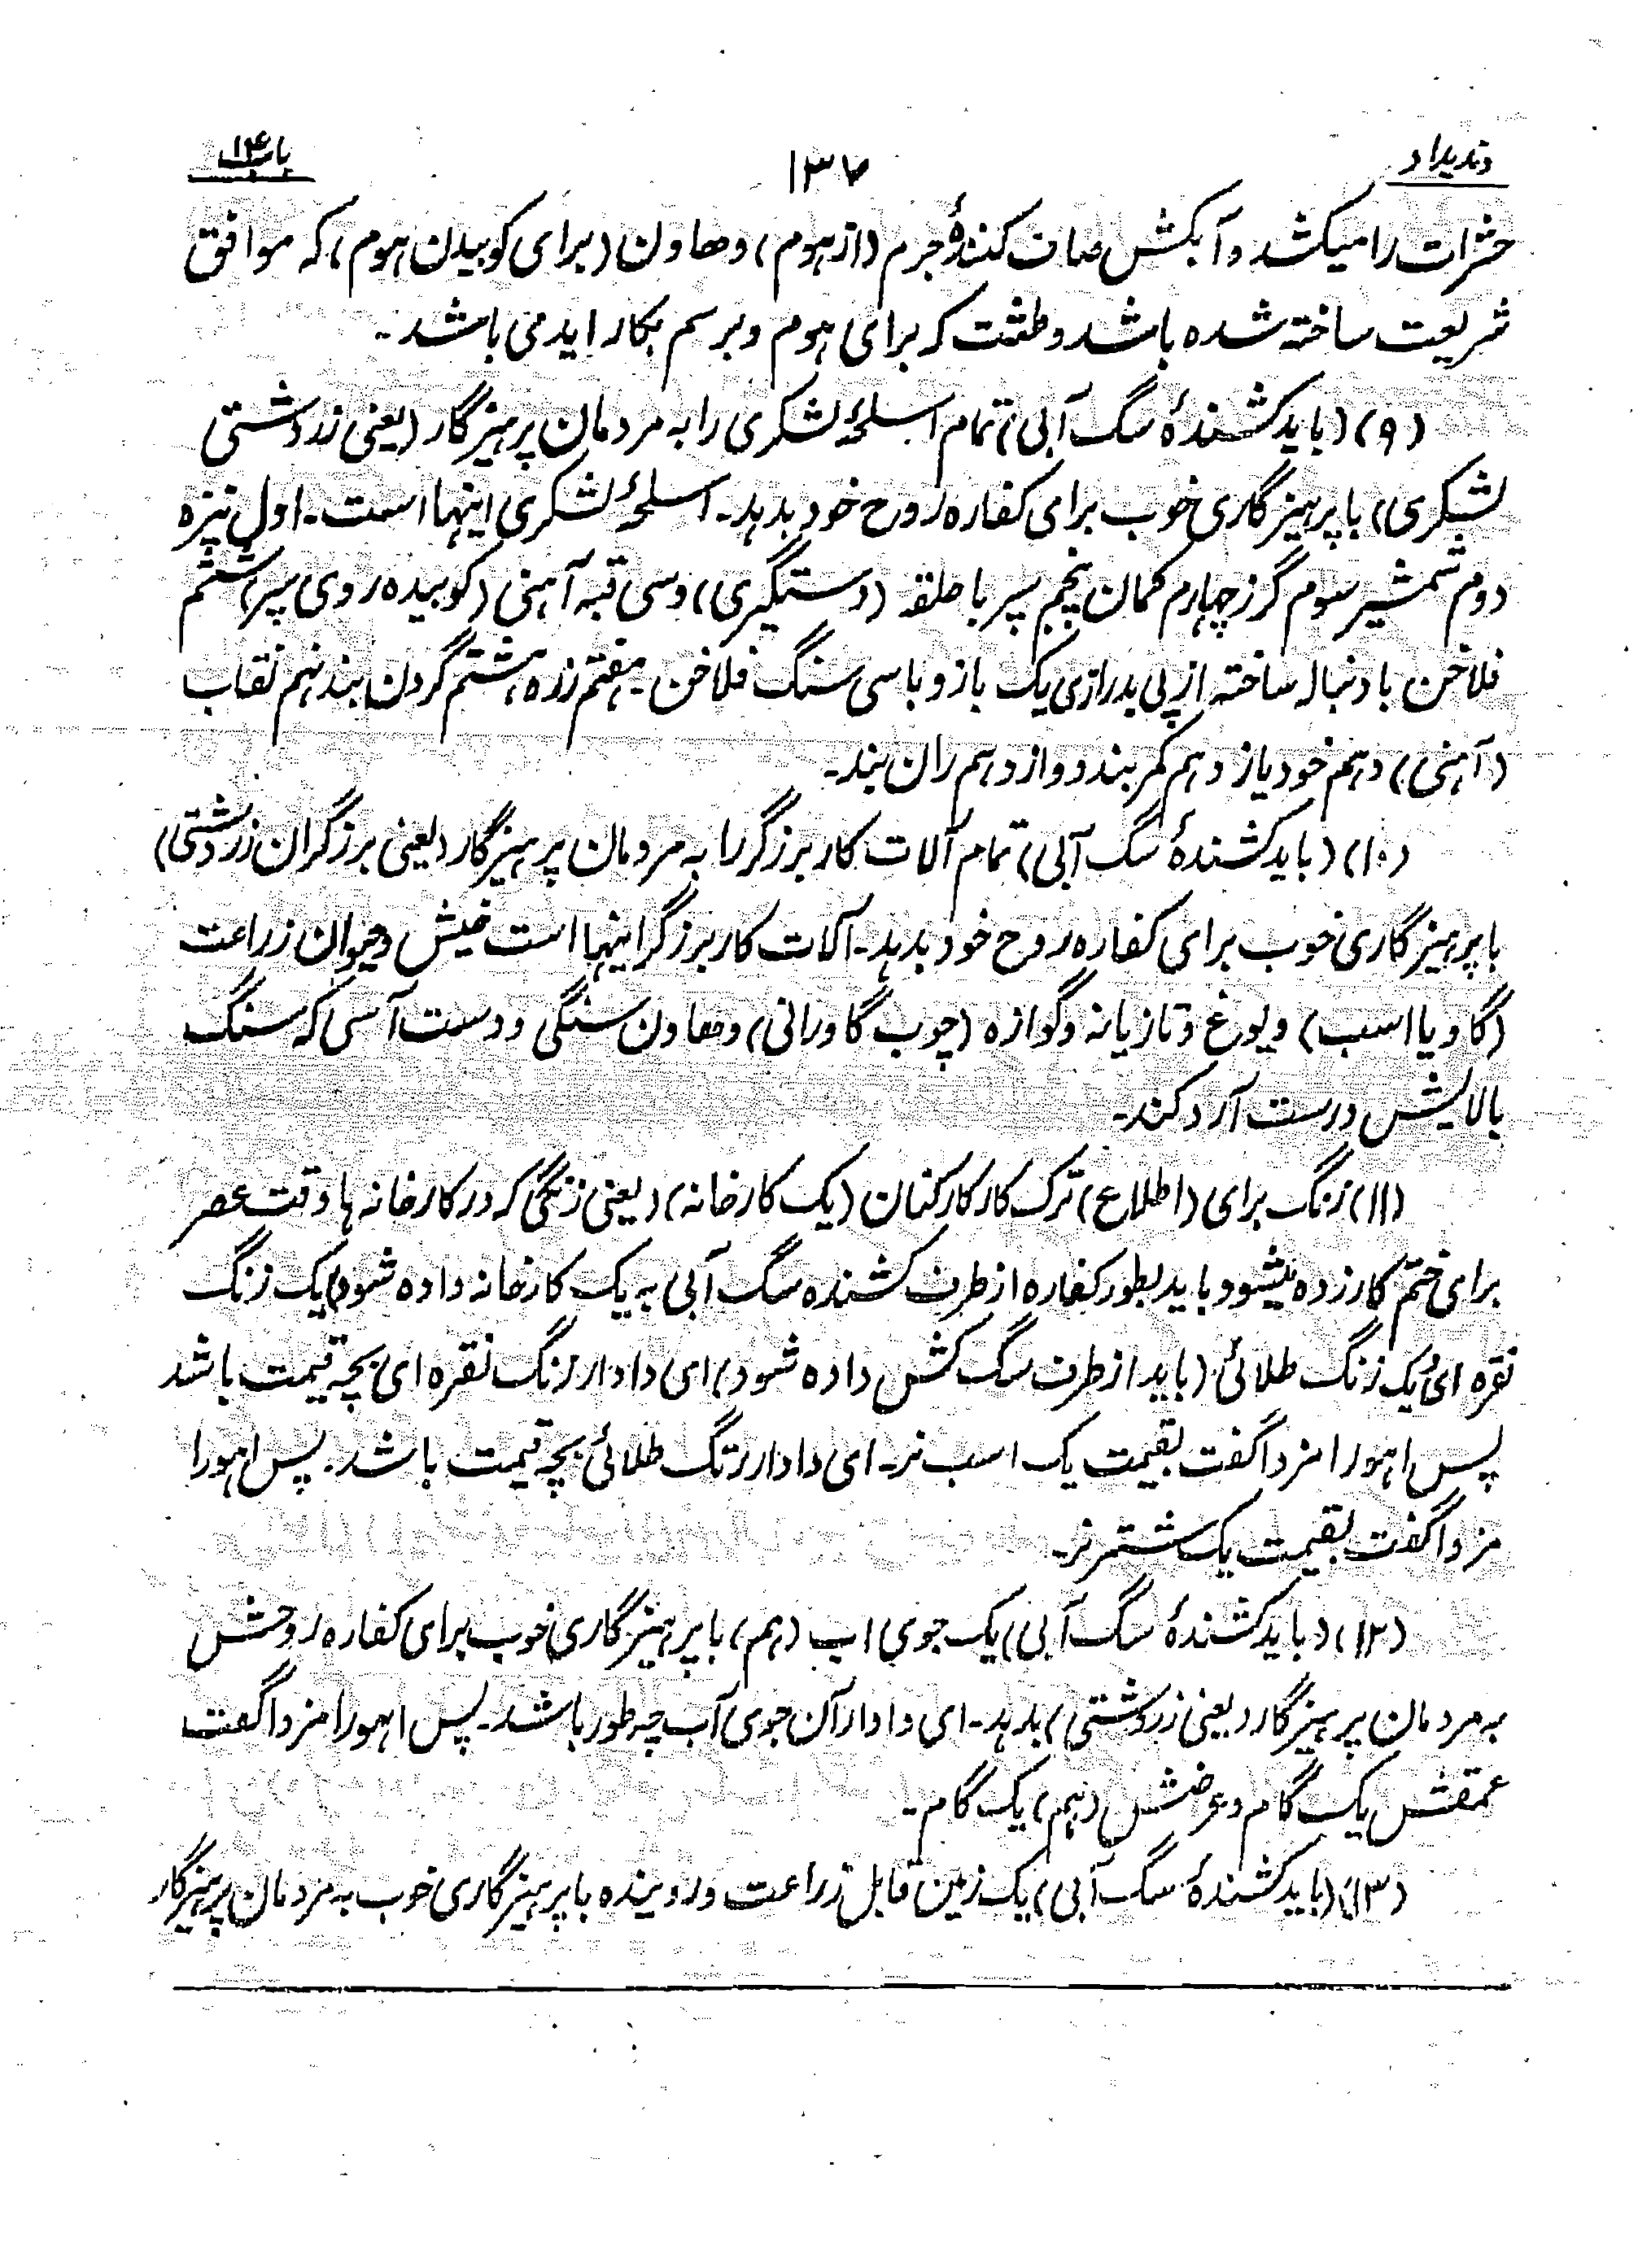 وندیداد
۱۳۷
باب ۱۴
حشرات را میکشد و آبکش صاف کنندهٔ جرم (از هوم) و هاون (برای کوبیدن هوم) که موافق
شریعت ساخته شده باشد و طشت که برای هوم و برسم بکار اید می باشد۔
(۹) (باید کشندهٔ سگ آبی) تمام اسلحهٔ لشکری را به مردمان پرهیزگار (یعنی زردشتی
لشکری) با پرهیزگاری خوب برای کفاره روح خود بدهد۔ اسلحهٔ لشکری اینها است۔ اول نیزه
دوم شمشیر سوم گرز چهارم کمان پنجم سپر با حلقه (دستگیری) و سی قبه آهنی (کوبیده روی سپر) ششم
فلاخن با دنباله ساخته از پی بدرازی یک بازو با سی سنگ فلاخن۔ هفتم زره هشتم گردن بند نهم نقاب
(آهنی) دهم خود یازدهم کمربند دوازدهم ران بند۔
(۱۰) (باید کشندهٔ سگ آبی) تمام آلات کار برزگر را به مردمان پرهیزگار (یعنی برزگران زردشتی)
با پرهیزگاری خوب برای کفاره روح خود بدهد۔ آلات کار برزگر اینها است خیش و حیوان زراعت
(گاو یا اسب) و یوغ و تازیانه و گوازه (چوب گاورانی) و هاون سنگی و دست آسی که سنگ
بالایش درست آرد کند۔
(۱۱) زنگ برای (اطلاع) ترک کار کارکنان (یک کارخانه) (یعنی زنگی که در کارخانه ها وقت عصر
برای ختم کار زده میشود و باید بطور کفاره از طرف کشنده سگ آبی به یک کارخانه داده شود) یک زنگ
نقره ای و یک زنگ طلائی (باید از طرف سگ کش داده شود) ای دادار زنگ نقره ای بچه قیمت باشد
پس اهورا مزدا گفت بقیمت یک اسب نر۔ ای دادار زنگ طلائی بچه قیمت باشد۔ پس اهورا
مزدا گفت بقیمت یک شتر نر۔
(۱۲) (باید کشندهٔ سگ آبی) یک جوی اب (هم) با پرهیزگاری خوب برای کفاره روحش
به مردمان پرهیزگار (یعنی زردشتی) بدهد۔ ای دادار آن جوی آب چه طور باشد۔ پس اهورا مزدا گفت
عمقش یک گام و عرضش (هم) یک گام۔
(۱۳) (باید کشندهٔ سگ آبی) یک زمین قابل زراعت و روینده با پرهیزگاری خوب به مردمان پرهیزگار